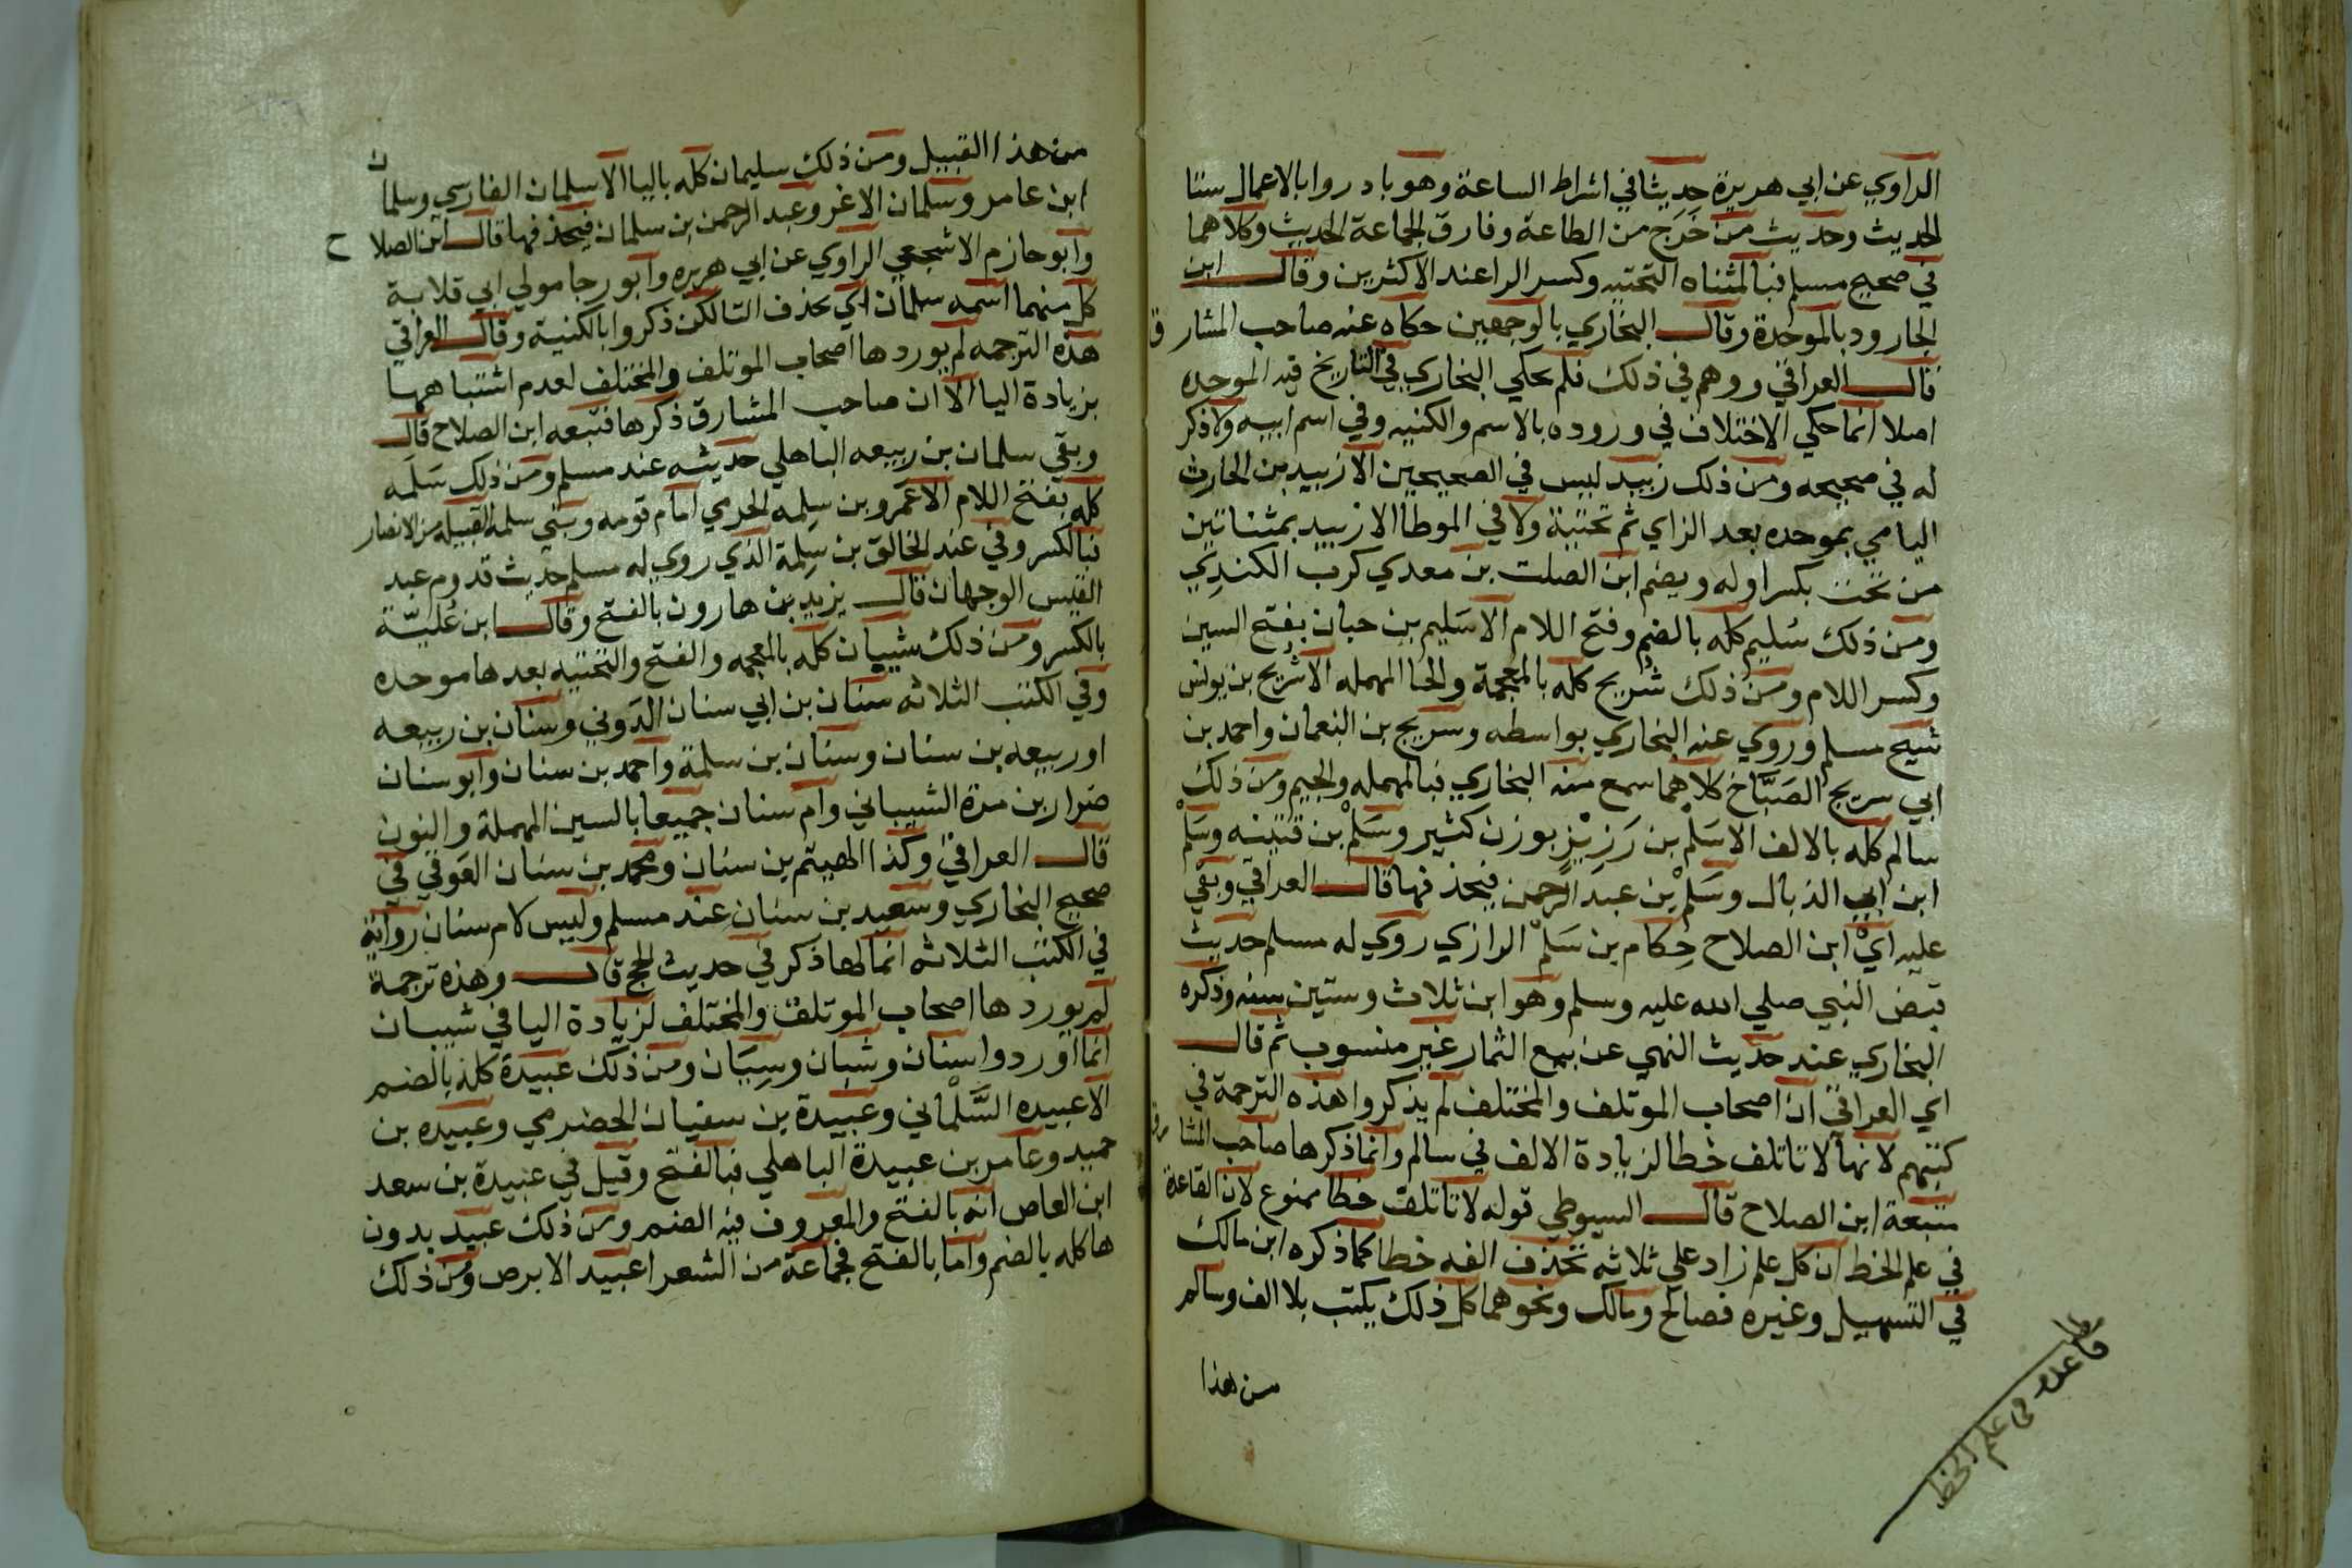 الراوي عن ابي هريرة حديثا في اشراط الساعة وهو بادروا بالاعمال ستا
الحديث وحديث من خَرَج من الطاعة وفارق الجماعة الحديث وكلاهما
في صحيح مسلم فبالمثناه التحتيه وكسر الرا عند الاكثرين وقال ابن
الجارود بالموحدة وقال البخاري بالوجهين حكاه عنه صاحب المشارق
قال العراقي ووهم في ذلك فلم يحكي البخاري في التاريخ فيه الموحده
اصلا انما حكي الاختلاف في وروده بالاسم والكنيه وفي اسم ابيه ولا ذكر
له في صحيحه ومن ذلك زبيد ليس في الصحيحين الا زبيد بن الحارث
اليامي بموحده بعد الزاي ثم تحتية ولا في الموطا الا زييد بمثناتين
من تحت بكسر اوله ويضم ابن الصلت بن معدي كرب الكندي
ومن ذلك سُليم كله بالضم وفتح اللام الا سَليم بن حبان بفتح السين
وكسر اللام ومن ذلك شريح كله بالمعجمة والحا المهمله الا سريج بن يونس
شيخ مسلم وروي عنه البخاري بواسطه وسريج بن النعمان واحمد بن
ابي سريج الصَبَّاخ كلاهما سمع منه البخاري فبالمهمله والجيم ومن ذلك
سالم كله بالالف الا سَلْم بن رَزِيْرٍ بوزن كثير وسَلْم بن قتيبه وسَلْم
ابن ابي الذيال وسَلْم بن عبد الرحمن فبحذفها قال العراقي وبقي
عليه ايْ ابن الصلاح حِكام بن سَلْم الرازي روي له مسلم حديث
قبض النبي صلي الله عليه وسلم وهو ابن ثلاث وستين سنه وذكره
البخاري عند حديث النهي عن بيع الثمار غير منسوب ثم قال
اي العراقي ان اصحاب الموتلف والمختلف لم يذكروا هذه الترجمة في
كتبهم لانها لا تاتلف خطا لزيادة الالف في سالم وانما ذكرها صاحب المشارق
فتبعة ابن الصلاح قال السيوطي قوله لا تاتلف خطا ممنوع لان القاعدة
في علم الخط ان كل علم زاد علي ثلاثه تحذف الفه خطا كما ذكره ابن مالك
في التسهيل وغيره فصالح ومالك ونحوهما كل ذلك يكتب بلا الف وسالم
من هذا
مطلب
قاعده في علم الخط
من هذا القبيل ومن ذلك سليمان كله باليا الا سلمان الفارسي وسلمان
ابن عامر وسلمان الاغر وعبد الرحمن بن سلمان فبحذفها قال ابن الصلاح
وابو حازم الاشجعي الراوي عن ابي هريره وابو رجا مولي ابي قلابة
كل منهما اسمه سلمان اي بحذف اليا لكن ذكروا بالكنية وقال العراقي
هذه الترجمه لم يوردها اصحاب الموتلف والمختلف لعدم اشتباهها
بزيادة اليا الا ان صاحب المشارق ذكرها فتبعه ابن الصلاح قال
وبقي سلمان بن ربيعه الباهلي حديثه عند مسلم ومن ذلك سَلَمَه
كله بفتح اللام الا عَمرو بن سلِمه الجرمي امام قومه وبني سلمه القبيله من الانصار
فبالكسر وفي عبد الخالق بن سَلِمة الذي روي له مسلم حديث قدوم عبد
القيس الوجهان قال يزيد بن هارون بالفتح وقال ابن عُليّة
بالكسر ومن ذلك شيبان كله بالمعجمه والفتح والتحتيه بعدها موحده
وفي الكتب الثلاثه سنان بن ابي سنان الدوني وسنان بن ربيعه
او ربيعه بن سنان وسنان بن سلمة واحمد بن سنان وابو سنان
ضرار بن مرة الشيباني وام سنان جميعا بالسين المهملة والنون
قال العراقي وكذا الهيثم بن سنان ومحمد بن سنان العَوقي في
صحيح البخاري وسعيد بن سنان عند مسلم وليس لام سنان رواية
في الكتب الثلاثه انما لها ذكر في حديث الحج قال وهذه ترجمة
لم يوردها اصحاب الموتلف والمختلف لزيادة اليا في شيبان
انما اوردوا سنان وشبان وسِيَان ومن ذلك عبيدة كله بالضم
الا عبيده السَّلْماني وعَبيدة بن سفيان الحضرمي وعبيده بن
حميد وعامر بن عبيدة الباهلي فبالفتح وقيل في عبيدة بن سعد
ابن العاص انه بالفتح والمعروف فيه الضم ومن ذلك عبيد بدون
ها كله بالضم واما بالفتح فجماعة من الشعرا عبيد الابرص ومن ذلك